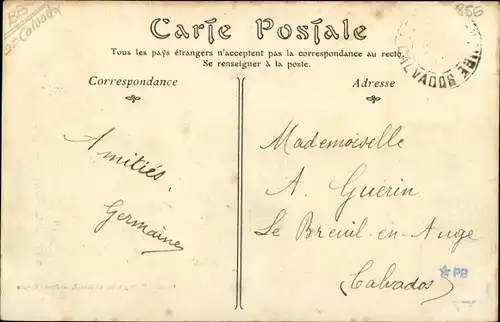 BB
D=Calvados
856
Carte Postale
Tous les pays étrangers n'acceptent pas la correspondance au recto.
Se renseigner à la poste.
Correspondance
Adresse
CALVADOS
Amitiés,
Germaine
Mademoiselle
A. Guérin
Le Breuil-en-Auge
Calvados
PB